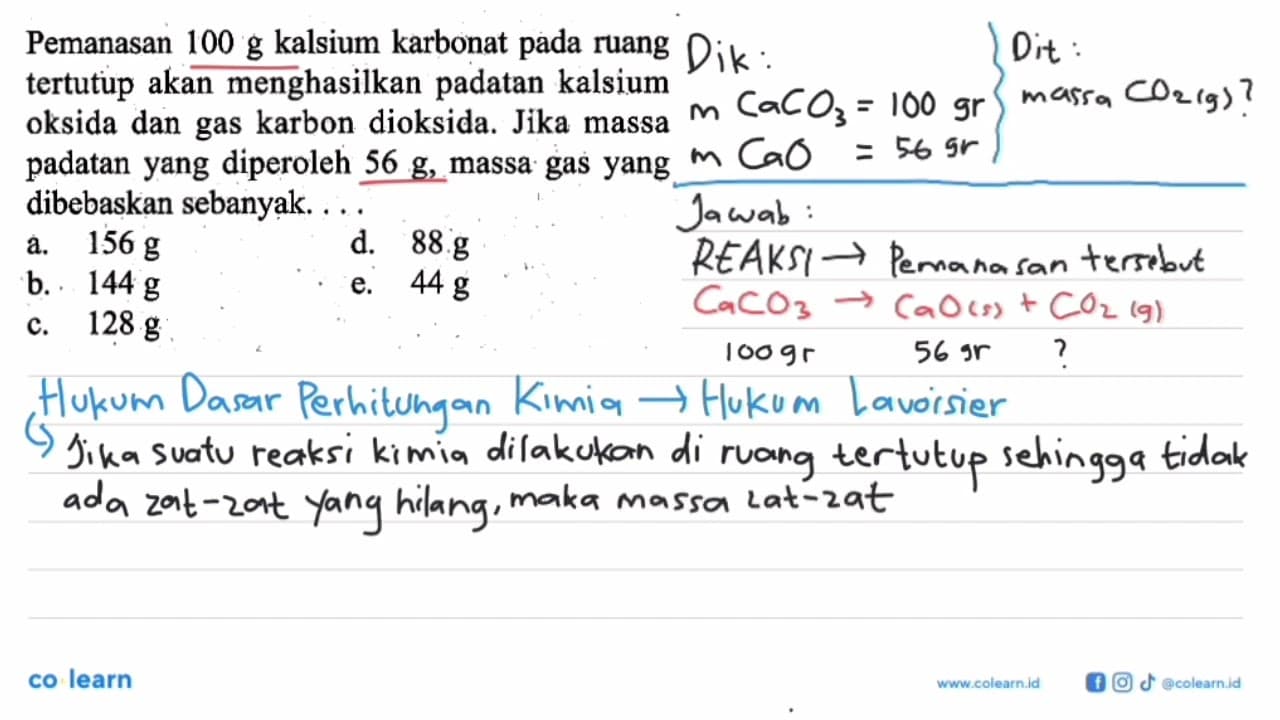 Pemanasan 100 g kalsium karbonat pada ruang
tertutup akan menghasilkan padatan kalsium
oksida dan gas karbon dioksida. Jika massa
padatan yang diperoleh 56 g, massa gas yang
dibebaskan sebanyak. . . .
a. 156 g d. 88 g
b. 144 g e. 44 g
c. 128 g
Dik :
m CaCO₃ = 100 gr
m CaO = 56 gr
Dit :
massa CO₂(g)?
Jawab :
REAKSI → Pemanasan tersebut
CaCO₃ → CaO(s) + CO₂ (g)
100gr 56 gr ?
Hukum Dasar Perhitungan Kimia → Hukum Lavoisier
↳ Jika suatu reaksi kimia dilakukan di ruang tertutup sehingga tidak
ada zat-zat yang hilang, maka massa zat-zat
co learn
www.colearn.id @colearn.id